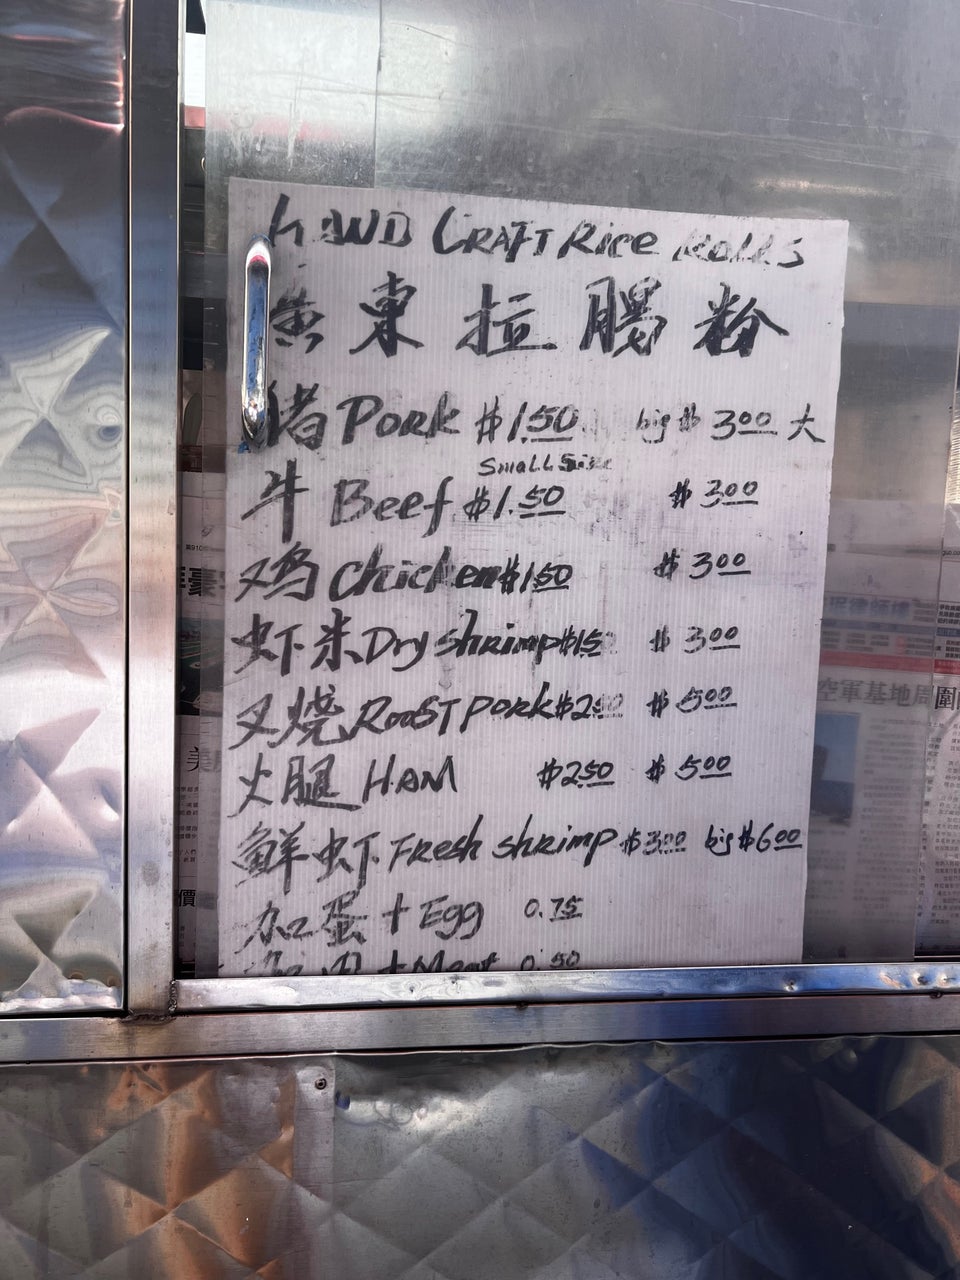 HAND CRAFT Rice Rolls
廣東拉腸粉
猪 Pork $1.50 big $3.00 大
Small Size
牛 Beef $1.50 $3.00
鸡 Chicken $1.50 $3.00
虾米 Dry shrimp $1.5 $3.00
叉烧 ROOST pork $2.50 $5.00
火腿 HAM $2.50 $5.00
鲜虾 Fresh shrimp $3.00 big $6.00
加蛋 + Egg 0.75
加肉 + Meat 0.50
空軍基地周圍